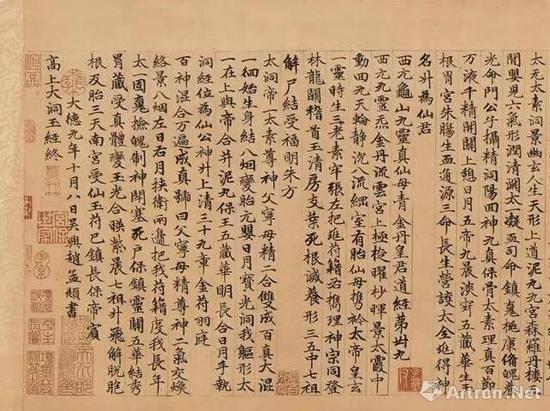 太元太洞景幽玄人生天形上道泥丸九宮森羅丹樓
閒嬰兒六氣形潤清淵太凝孟司命鎮鬼極康備魄養
光命門公子攝精洞陽四神九真保骨太素理真百節
万液千精開關上憩日月五帝九裴淡齊五藏華生玉
根胃宮朱腸生血通源三命長生營護太金延得神
名升為仙君
西元龜山九靈真仙母青金丹皇君道經第卅九
西元九靈炁金丹流雲宮上極梭耀杪暉景太霞中
動囬九天輪靜沉八流細室有胎仙母攜袊太帝皇玄
一靈時生三老素牢張左把延符籍右攜理神宗同登
林龍闕稽首玉清房支葉死根滅養形三五中七祖
解尸結受福明朱方
太洞帝一太素尊神父寧母精二合雙成百真大混
一徊始生身結八烟變胎元嬰日月賓光洞我軀形太
一在上與帝合并泥丸保玉五藏華明長合日月手執
洞經位為仙公神升上清三十九章金符羽庭
百神混合万遍成真號曰父寧母精尊神二氣交煥
絡景八烟左日右月扶衛兩遥把我符籍度我長年
太一固魂撿魄制神開塞死戶保鎮靈五華結秀
胃藏受真體變玉光合映紫晨七祖升飛解脫胞
根反胎三天南宮受仙玉符已鎮長保帝賓
大德九年十月八日吴興趙孟頫書
高上大洞玉經終
Artron.Net